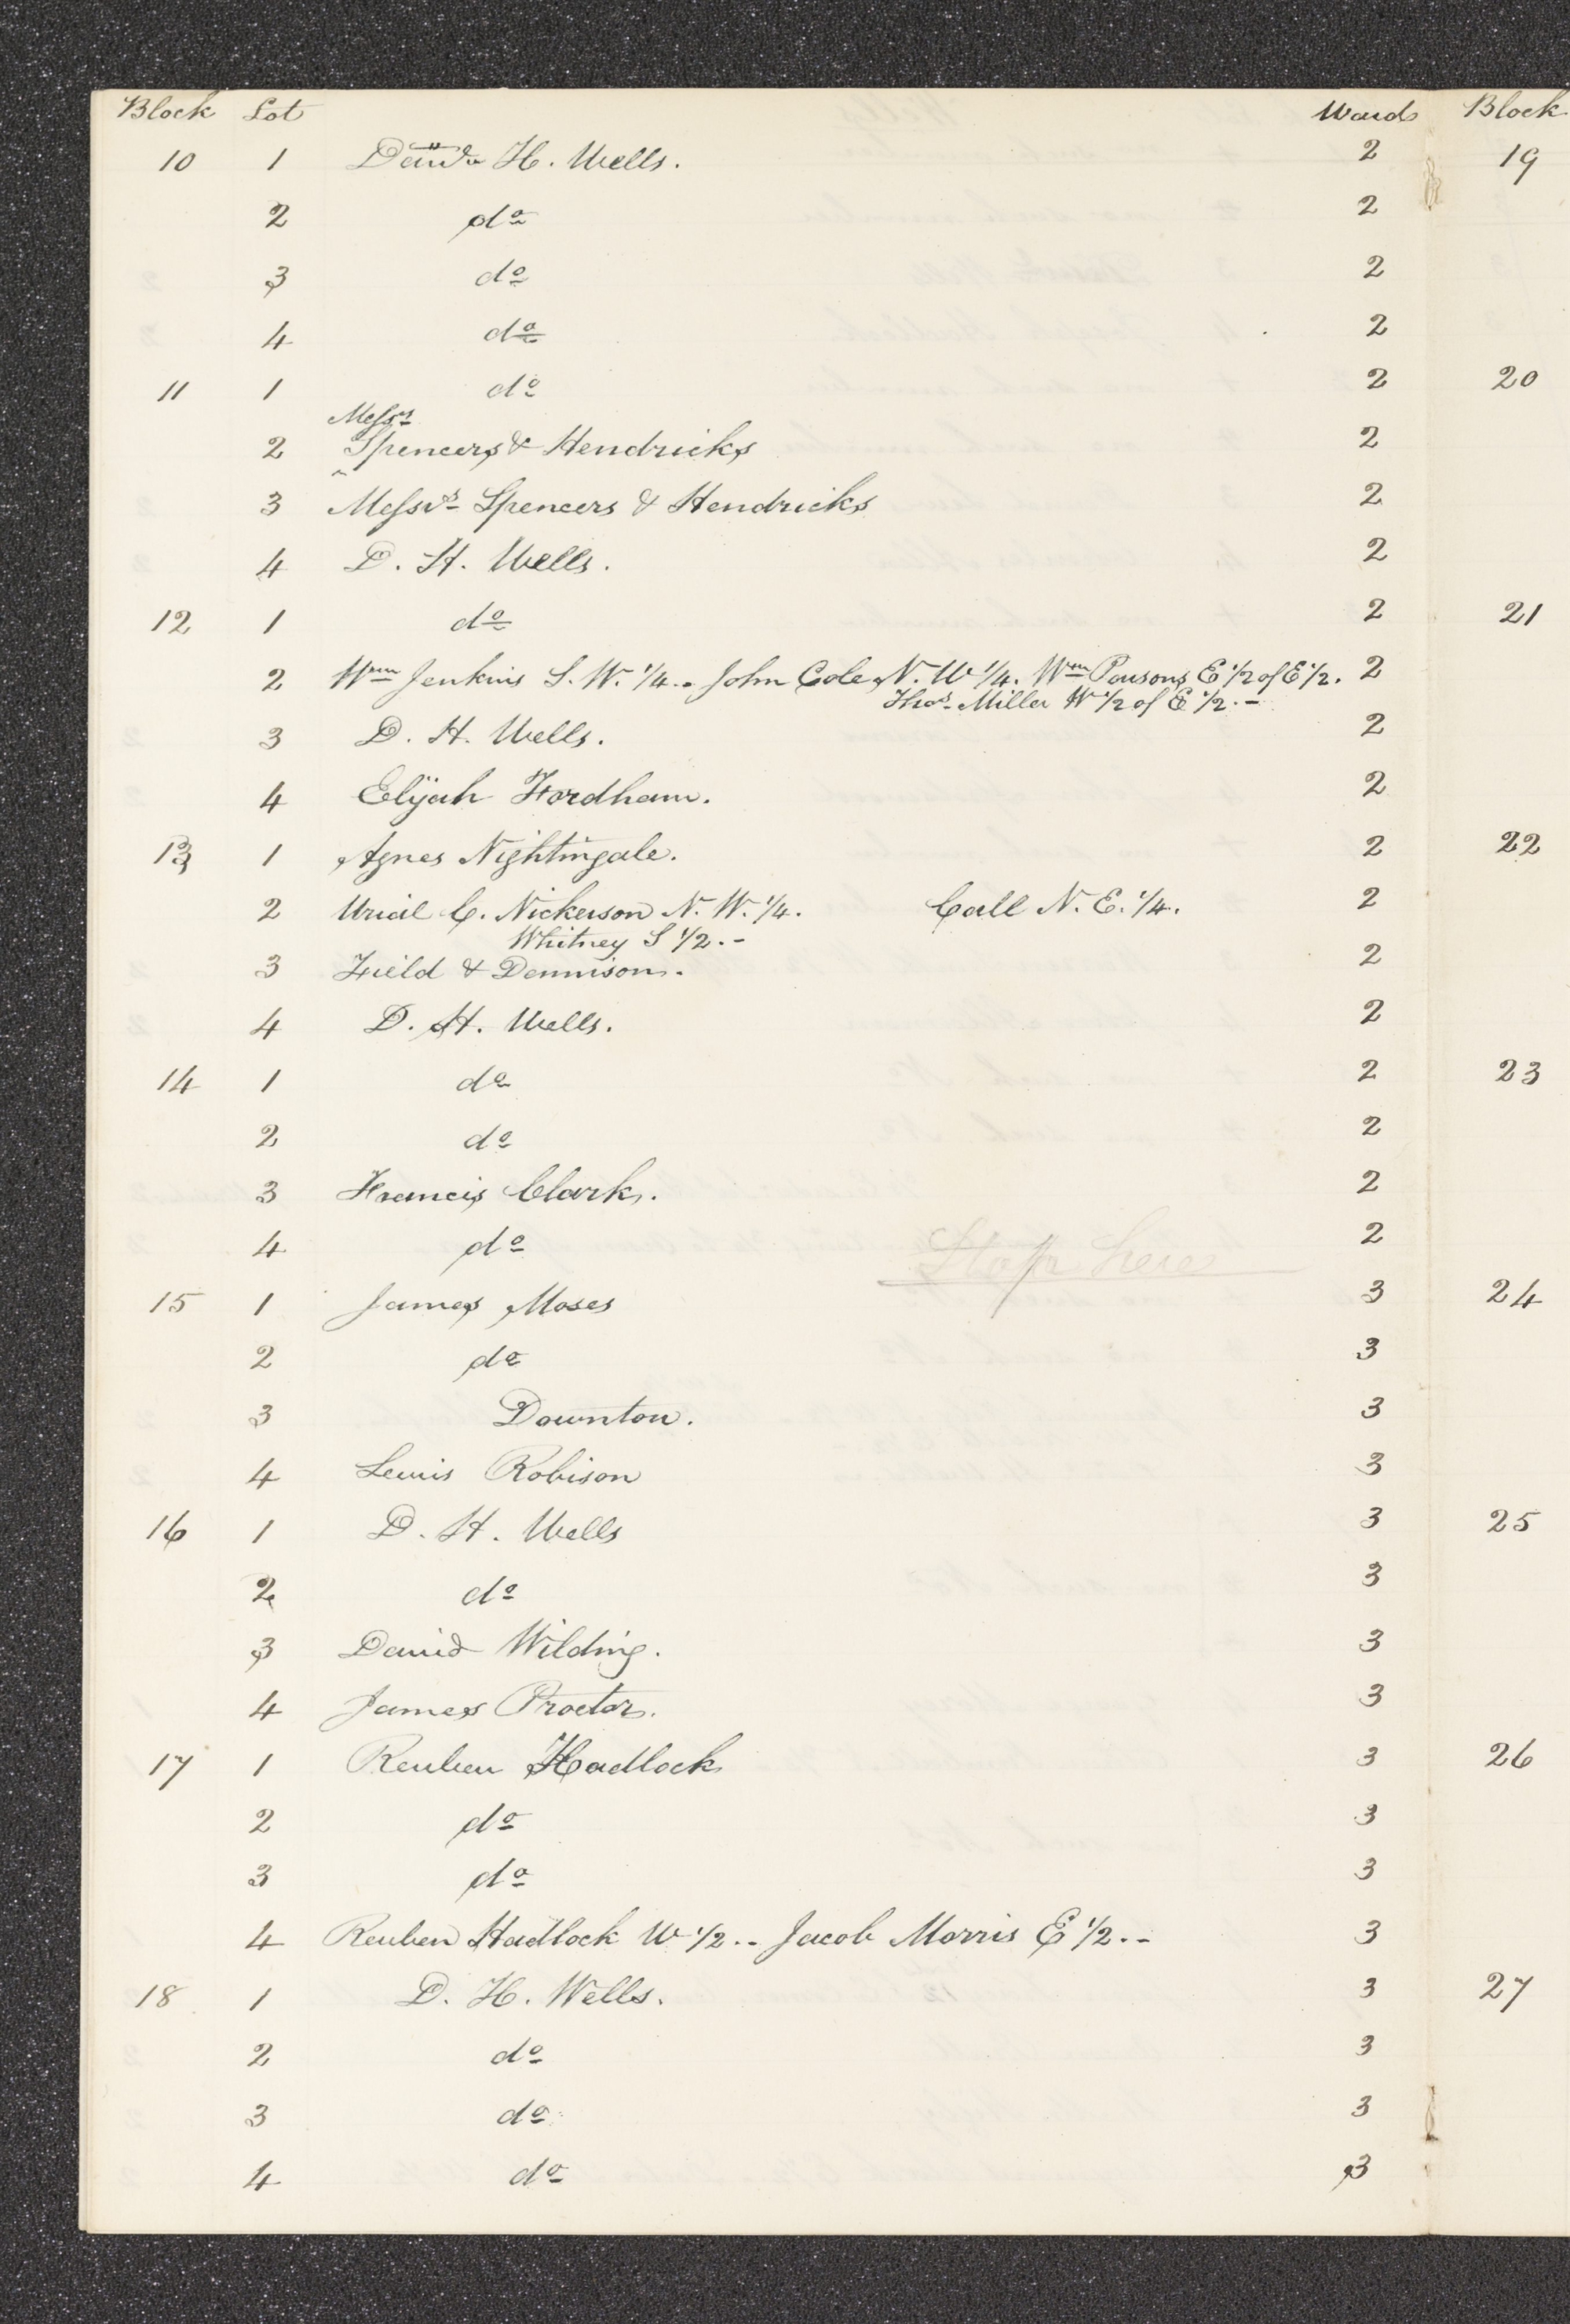 Block Lot Wards Block
10 1 Dan.l H. Wells. 2 19
2 do 2
3 do 2
4 do 2
11 1 do 2 20
Messrs
2 Spencers & Hendricks 2
3 Messrs Spencers & Hendricks 2
4 D. H. Wells. 2
12 1 do 2 21
2 Wm Jenkins S. W. 1/4. - John Cole N. W 1/4. Wm Parsons E 1/2 of E 1/2. 2
Thos. Miller W 1/2 of E 1/2. -
3 D. H. Wells. 2
4 Elijah Fordham. 2
13 1 Agnes Nightingale. 2 22
2 Urial C. Nickerson N. W. 1/4. Call N. E. 1/4. 2
Whitney S 1/2. -
3 Field & Dennison. 2
4 D. H. Wells. 2
14 1 do 2 23
2 do 2
3 Francis Clark. 2
4 do 2
Stop here
15 1 James Moses 3 24
2 do 3
3 Downton. 3
4 Lewis Robison 3
16 1 D. H. Wells 3 25
2 do 3
3 David Wilding. 3
4 James Proctor. 3
17 1 Reuben Hadlock 3 26
2 do 3
3 do 3
4 Reuben Hadlock W 1/2. - Jacob Morris E 1/2. - 3
18 1 D. H. Wells. 3 27
2 do 3
3 do 3
4 do 3